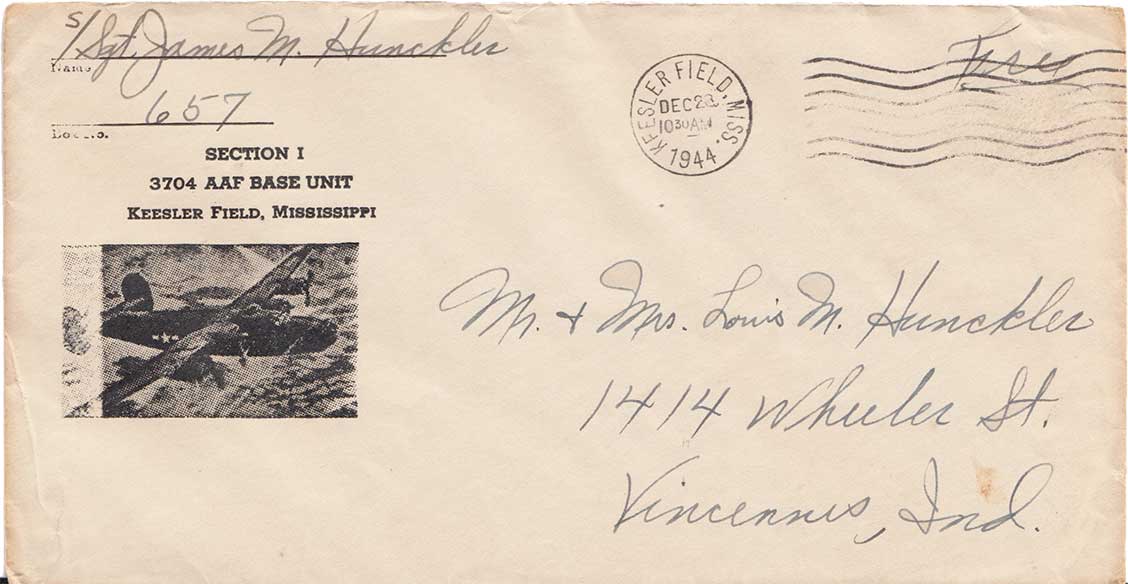 S/Sgt. James M. Hunckler
Name
657
Box No.
SECTION I
3704 AAF BASE UNIT
KEESLER FIELD, MISSISSIPPI
KEESLER FIELD, MISS.
DEC 28
1030 AM
1944
Free
Mr. & Mrs. Louis M. Hunckler
1414 Wheeler St.
Vincennes, Ind.